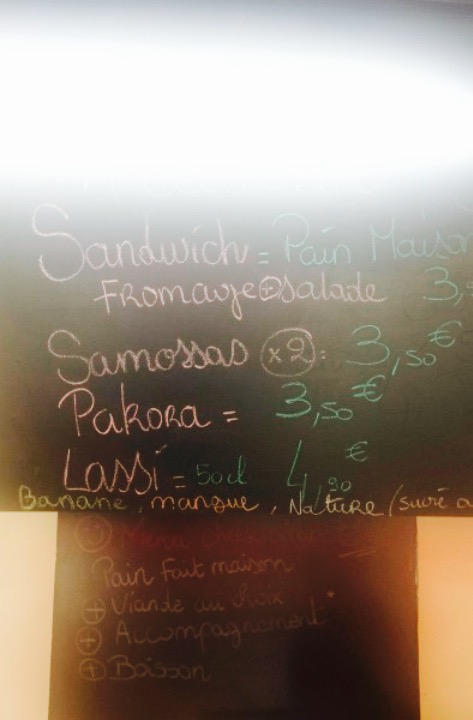 Sandwich = Pain Maison
Fromage + Salade 3,
Samossas x2 : 3,50€
Pakora = 3,50€
Lassi = 50cl 4,90€
Banane, mangue, Nature (sucré
+ Menu
Pain Fait maison
+ Viande au choix
+ Accompagnement*
+ Boisson